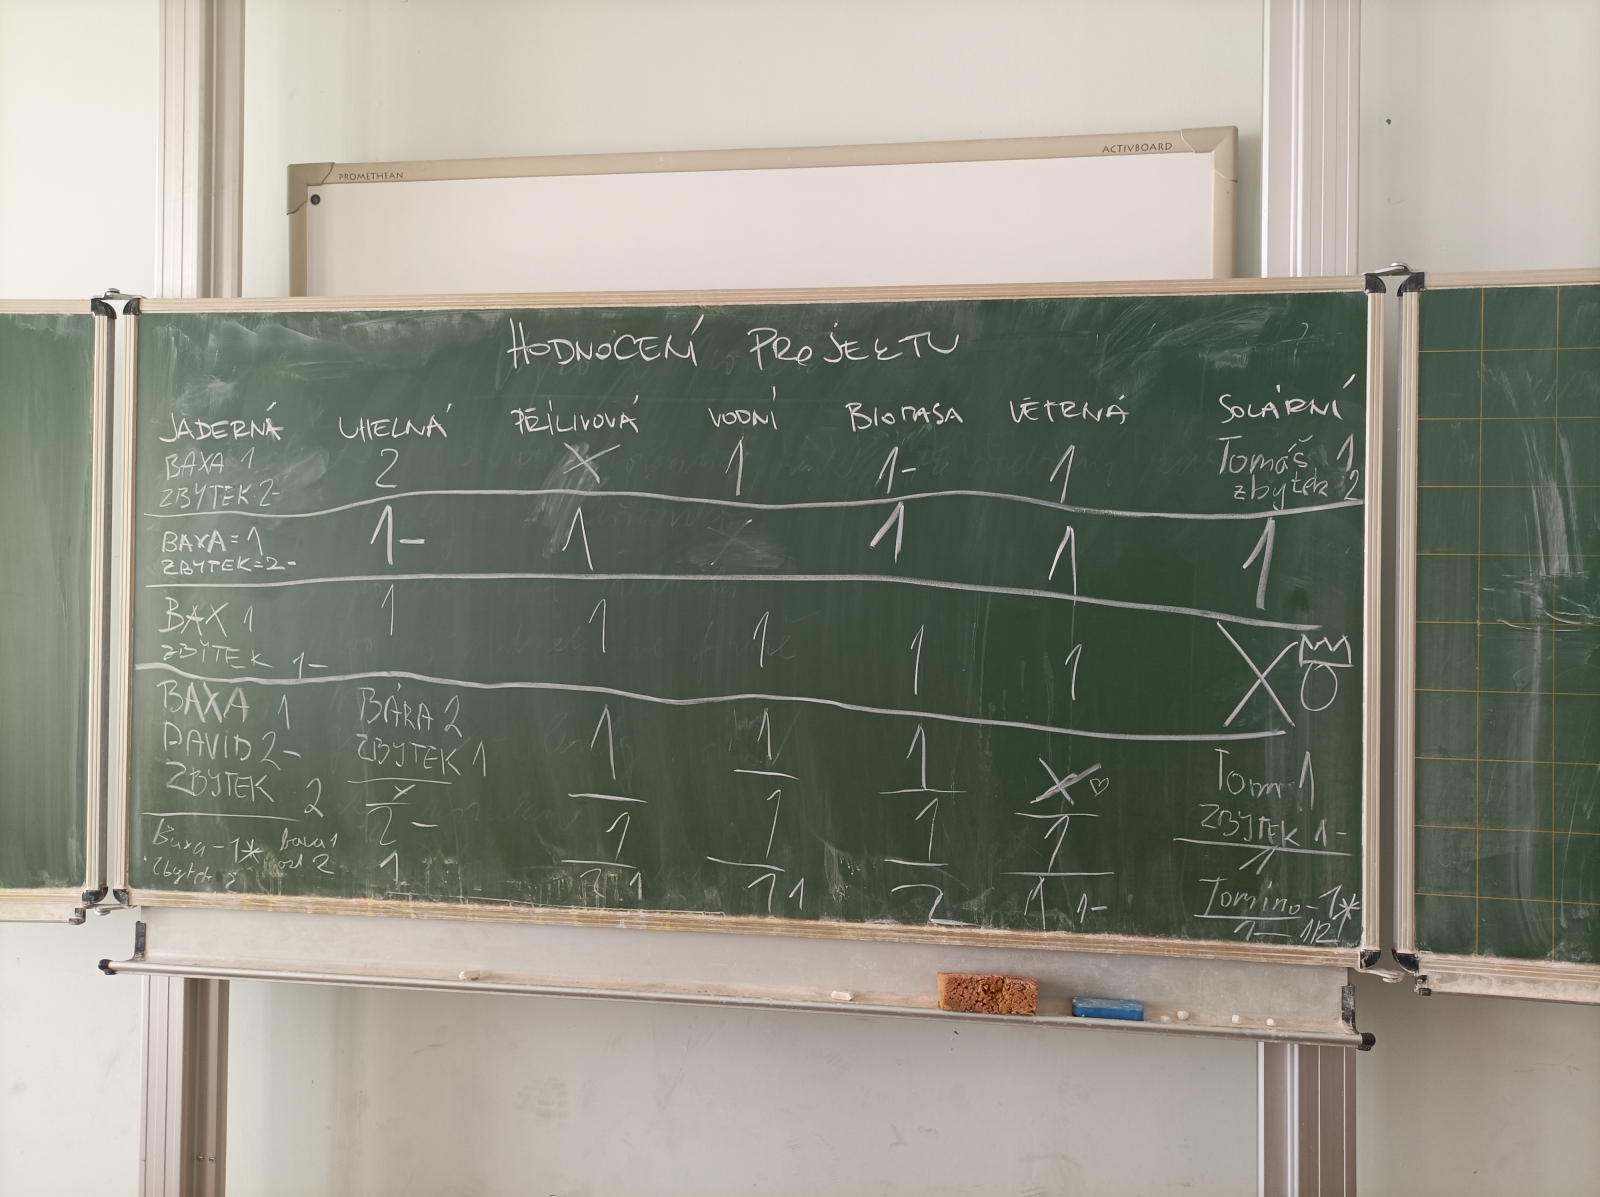 PROMETHEAN
ACTIVBOARD
HODNOCENÍ PROJEKTU
JADERNÁ UHELNÁ PŘÍLIVOVÁ VODNÍ BIOMASA VĚTRNÁ SOLÁRNÍ
BAXA 1 2 X 1 1- 1 Tomáš 1
ZBYTEK 2- zbytek 2
BAXA=1 1- 1 X 1 1 1
ZBYTEK=2-
BAX 1 1 1 1 1 1 X
ZBYTEK 1-
BAXA 1 BÁRA 2 1 1 1 X ♡ Tom 1
DAVID 2- ZBYTEK 1 ZBYTEK 1-
ZBYTEK 2
X
2- 1 1 1 1 1
Baxa-1* bara 1
zbytek 2 ost 2 1 1 1 1 2 1 1- Tomino-1*